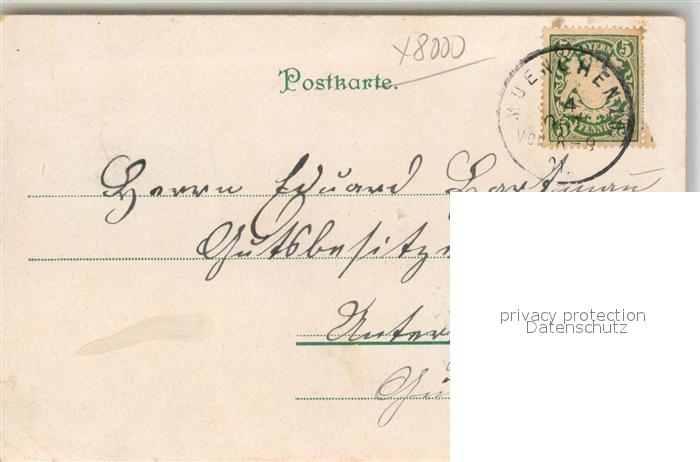 x8000
Postkarte.
BAYERN 5
5 PFENNIG
MUENCHEN
VOR 8-9
Herrn Eduard Hartmann
Gutsbesitze
Unter
Gu
privacy protection
Datenschutz